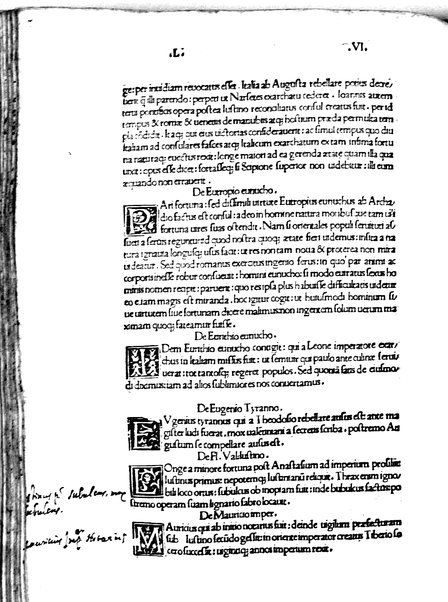 .L.
.VI.
ge: per inuidiam reuocatus esset. Italia ab Augusta rebellare potius decre
uerit q̃ illi parendo: perperi ut Narsetes exarchatu cederet. Ioannis autem
pontibus opera postea Iustino reconciliatus consul creatus fuit. per id
tempus & romæ & uenetus de manubiis atq; hostium præda permulta tem
pla
Italiam ad consulares fasces atq; Italicum exarchatum ex tam infima fortu
na natura q; euectus rexit: longe maiori ad ea gerenda ætate quam illa qua
uixit: opus esse dicet: fortasse q; si Scipione superior non uidebitur: illi eum
æquando non errauerit.
De Eutropio eunucho.
PAri fortuna: sed dissimili uirtute Eutropius eunuchus ab Archa
dio factus est consul: adeo in homine natura moribusque tam uili
fortuna uires suas ostendit. Nam si orientales populi seruituti as
sueti a seruis regunt: id quod nostra quoq; ætate fieri uidemus: insita a na
tura ignauia longusq; usus facit: ut res non tam noua & procerea non mira
uideatur. Sed quod romanus exercitus ingenio ferus: in quo par animi ac
corporis inesse robur consueuit: homini eunucho: si modo euiratus sexus ho
minis nomen recipit: paruerit: quo res ipsa plus habuisse difficultatis uidetur
eo etiam magis est miranda. hoc igitur cogit: ut huiusmodi hominum si
ue uirtutem siue fortunam dicere malimus non ingentem solum uerum ma
ximam quoq; fateamur fuisse.
De Eurithio eunucho.
IDem Eurithio eunucho contigit: qui a Leone imperatore exar
chus in Italiam missus fuit: ut seruiit qui paulo ante culinæ serui
uerat: tot tantosq; regeret populos. Sed quoniā satis de eiusmo
di diximus: iam ad alios sublimiores nos conuertamus.
De Eugenio Tyranno.
EVgenius tyrannus qui a Theodosio rebellare ausus est: ante ma
gister ludi fuerat, mox ualentiniani a secretis scriba, postremo Au
gustum se compellare ausus est.
De Fl. Val. Iustino.
LOnge a minore fortuna post Anastasium ad imperium prosiliit
Iustinus primus: nepotemq; Iustinianū reliquit. Thrax enim igno
bili loco ortus: subulcus ob inopiam fuit: inde bubulcus factus: po
stremo operam suam lignario fabro locauit.
De Mauricio imper.
MAuricius qui ab initio notarius fuit: deinde uigilum præfecturam
sub Iustino secūdo gessit: in oriente imperator creatus Tiberio so
cero successit: uigintiq; annos imperium rexit.
subulcus, mox
bubulcus.
notarius